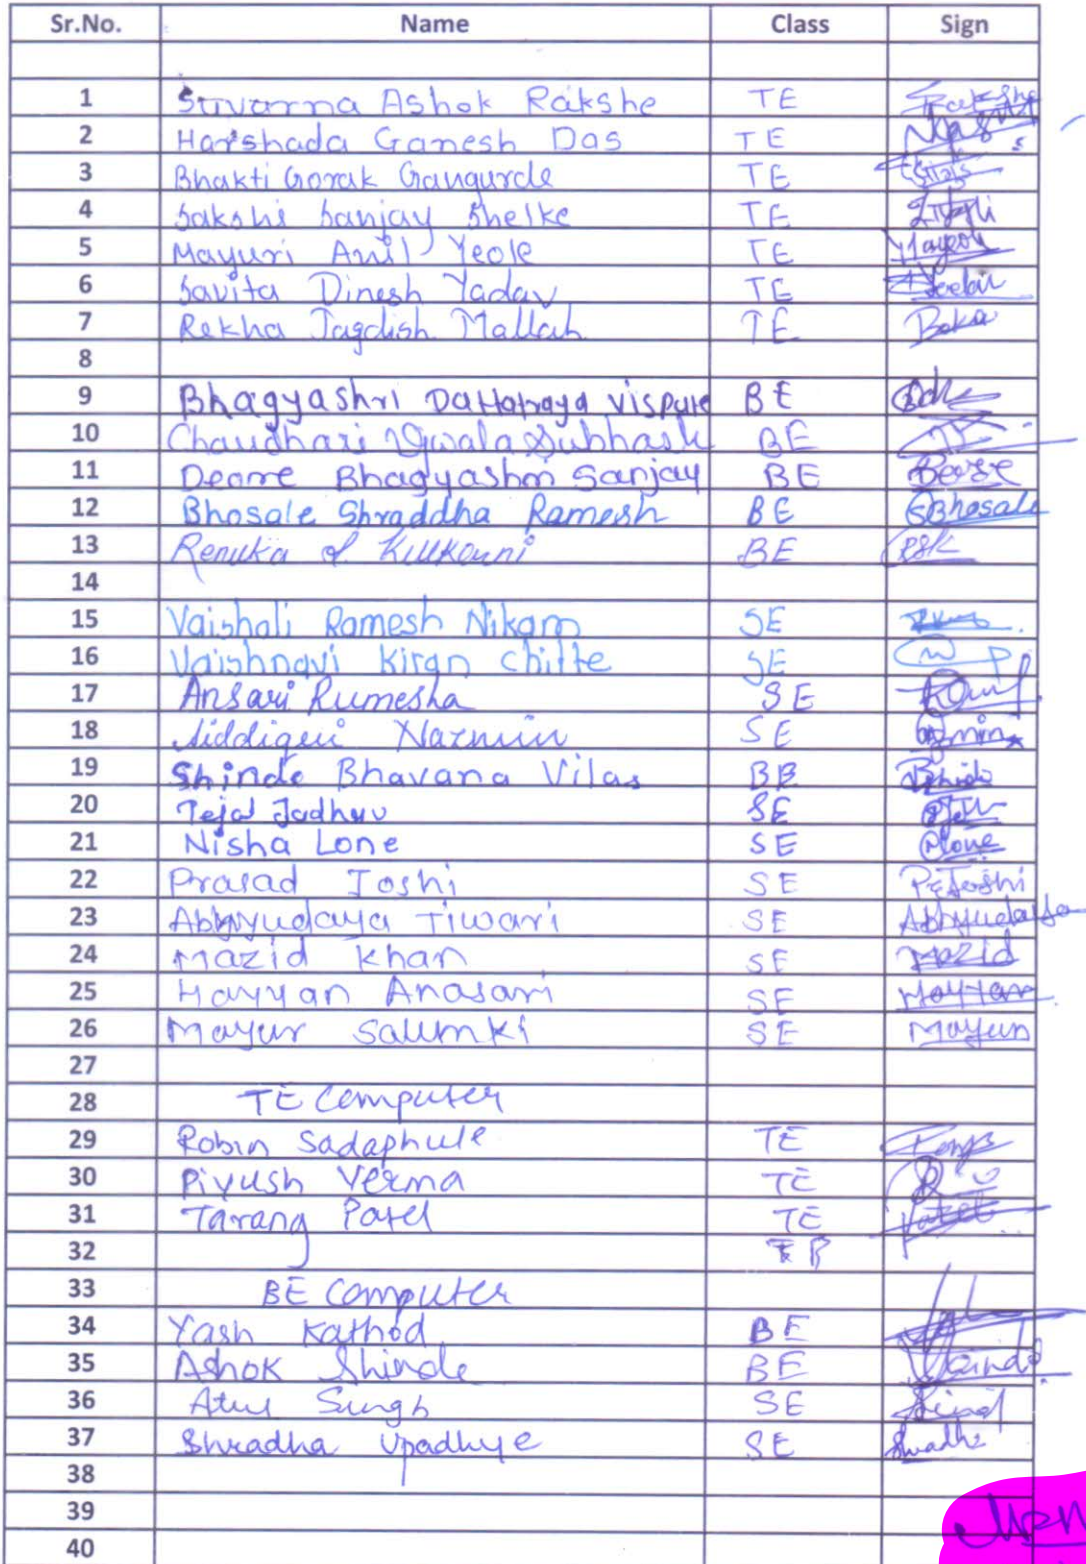 Sr.No. Name Class Sign
1 Suvarna Ashok Rakshe TE Rakshe
2 Harshada Ganesh Das TE
3 Bhakti Gorak Gangurde TE
4 Sakshi Sanjay Shelke TE
5 Mayuri Anil Yeole TE
6 Savita Dinesh Yadav TE
7 Rekha Jagdish Mallah TE
8
9 Bhagyashri Dattatraya Vispute BE
10 Chaudhari Ujwala Subhash BE
11 Deore Bhagyashri Sanjay BE
12 Bhosale Shraddha Ramesh BE SBhosale
13 Renuka BE PSK
14
15 Vaishali Ramesh Nikam SE
16 Vaishnavi Kiran Chitte SE
17 Ansari Rumesha SE
18 Siddiqui Nazmin SE
19 Shinde Bhavana Vilas BB
20 Tejal Jadhav SE
21 Nisha Lone SE
22 Prasad Joshi SE
23 Abhyudaya Tiwari SE Abhyudaya
24 Mazid Khan SE Mazid
25 Hayyan Anasari SE Hayyan
26 Mayur Salunki SE Mayur
27
28 TE Computer
29 Robin Sadaphule TE
30 Piyush Verma TE
31 Tarang Patel TE Patel
32
33 BE Computer
34 Yash Rathod BE
35 Ashok Shinde BE
36 Atul Singh SE
37 Shradha Upadhye SE
38
39
40